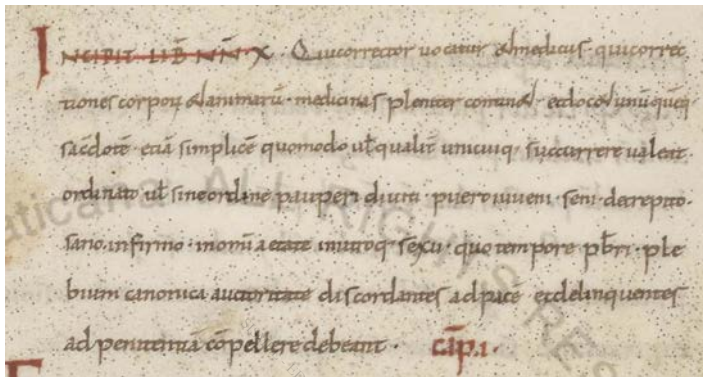 INCIPIT LIB̅ NN̅ X. Qui corrector uocatur & medicus. qui correc
tiones corporū & animarū. medicinas pleniter contin&. et doc& unū quēq;
sac̅dotē. etiā simplicē quomodo ul̅ qualit̅ unicuiq; succurrere ualeat.
ordinato ul̅ sine ordine pauperi diuiti. puero iuueni. seni. decrepito.
sano. infirmo. in om̅i aetate in utroq; sexu. quo tempore pb̅ri. ple
bium canonica auctoritate discordantes ad pacē et delinquentes
ad penitentiā cōpellere debeant. CAP̅.I.